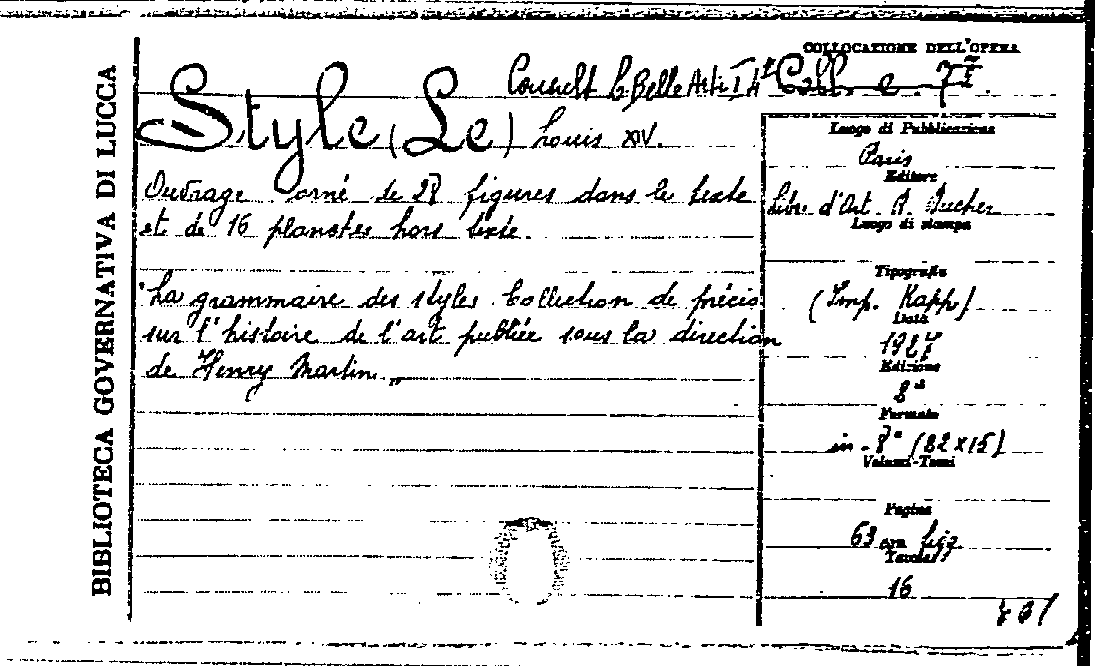 BIBLIOTECA GOVERNATIVA DI LUCCA
COLLOCAZIONE DELL'OPERA
Consult b. Belle Arti I 4t Coll. e. 7
Style (Le) Louis XIV.
Ouvrage orné de 28 figures dans le texte
et de 16 planches hors texte.
"La grammaire des styles Collection de précis
sur l'histoire de l'art publiée sous la direction
de Henry Martin „
Luogo di Pubblicazione
Paris
Editore
Libr. d'Art. R. Ducher
Luogo di stampa
Tipografia
(Imp. Kapp)
Data
1927
Edizione
Formato
in-8° (22 x 15)
Volumi-Tomi
Pagine
63 con figg.
Tavole
16